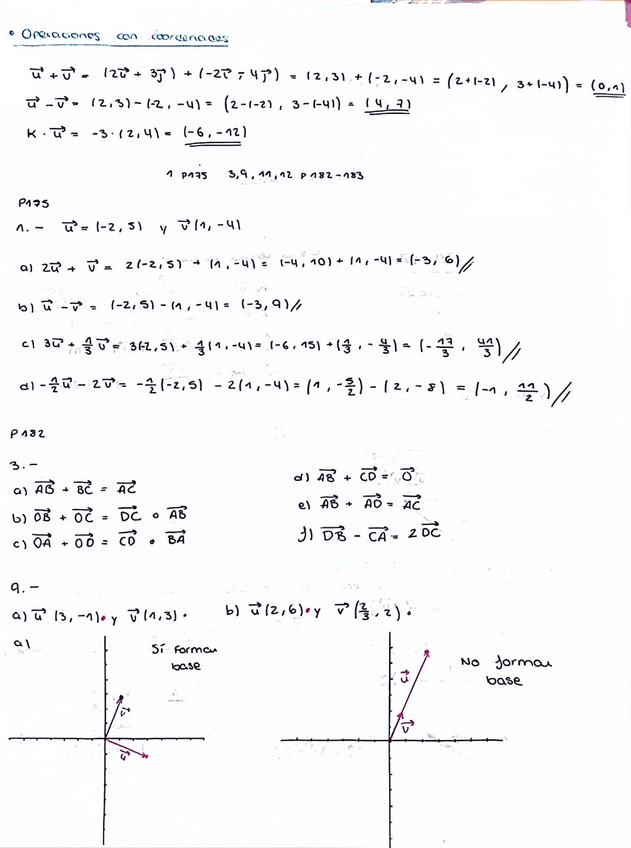 • Operaciones con coordenadas
u⃗ + v⃗ = (2u⃗ + 3j⃗) + (-2i⃗ - 4j⃗) = (2,3) + (-2,-4) = (2+(-2), 3+(-4)) = (0,1)
u⃗ - v⃗ = (2,3) - (-2,-4) = (2-(-2), 3-(-4)) = (4,7)
K · u⃗ = -3 · (2,4) = (-6,-12)
1 P175 3,9,11,12 P182-183
P175
1.- u⃗ = (-2,5) y v⃗ (1,-4)
a) 2u⃗ + v⃗ = 2(-2,5) + (1,-4) = (-4,10) + (1,-4) = (-3,6)//
b) u⃗ - v⃗ = (-2,5) - (1,-4) = (-3,9)//
c) 3u⃗ + 1/3 v⃗ = 3(-2,5) + 1/3 (1,-4) = (-6,15) + (1/3, -4/3) = (-17/3, 41/3)//
d) -1/2 u⃗ - 2v⃗ = -1/2 (-2,5) - 2(1,-4) = (1, -5/2) - (2,-8) = (-1, 11/2)//
P182
3.-
a) AB⃗ + BC⃗ = AC⃗
b) OB⃗ + OC⃗ = DC⃗ o AB⃗
c) OA⃗ + OD⃗ = CD⃗ o BA⃗
d) AB⃗ + CD⃗ = O⃗
e) AB⃗ + AD⃗ = AC⃗
f) DB⃗ - CA⃗ = 2 DC⃗
9.-
a) u⃗ (3,-1)• y v⃗ (1,3)• b) u⃗ (2,6)• y v⃗ (2/3, 2)•
a)
Sí forman
base
v⃗
u⃗
No forman
base
u⃗
v⃗